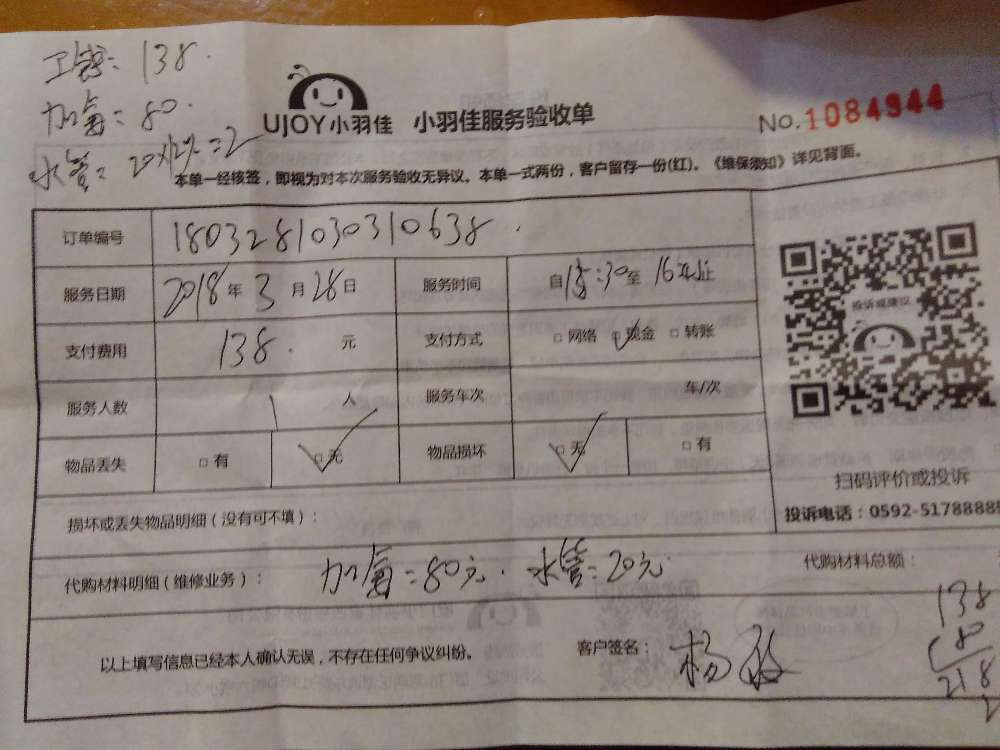 工钱:138.
加氟=80.
水管:
UJOY小羽佳 小羽佳服务验收单
No.1084944
本单一经核签,即视为对本次服务验收无异议。本单一式两份,客户留存一份(红)。《维保须知》详见背面。
订单编号 180328103031 0638.
服务日期 2018年3月28日 服务时间 自15:30至16 止
支付费用 138. 元 支付方式 □网络 □现金 □转账
服务人数 1人 服务车次 车/次
物品丢失 □有 □无 物品损坏 □无 □有
投诉或建议
扫码评价或投诉
投诉电话:0592-5178888
损坏或丢失物品明细(没有可不填):
代购材料明细(维修业务): 加氟=80元.水管:20元 代购材料总额:
138
80
218
以上填写信息已经本人确认无误,不存在任何争议纠纷。 客户签名: 杨